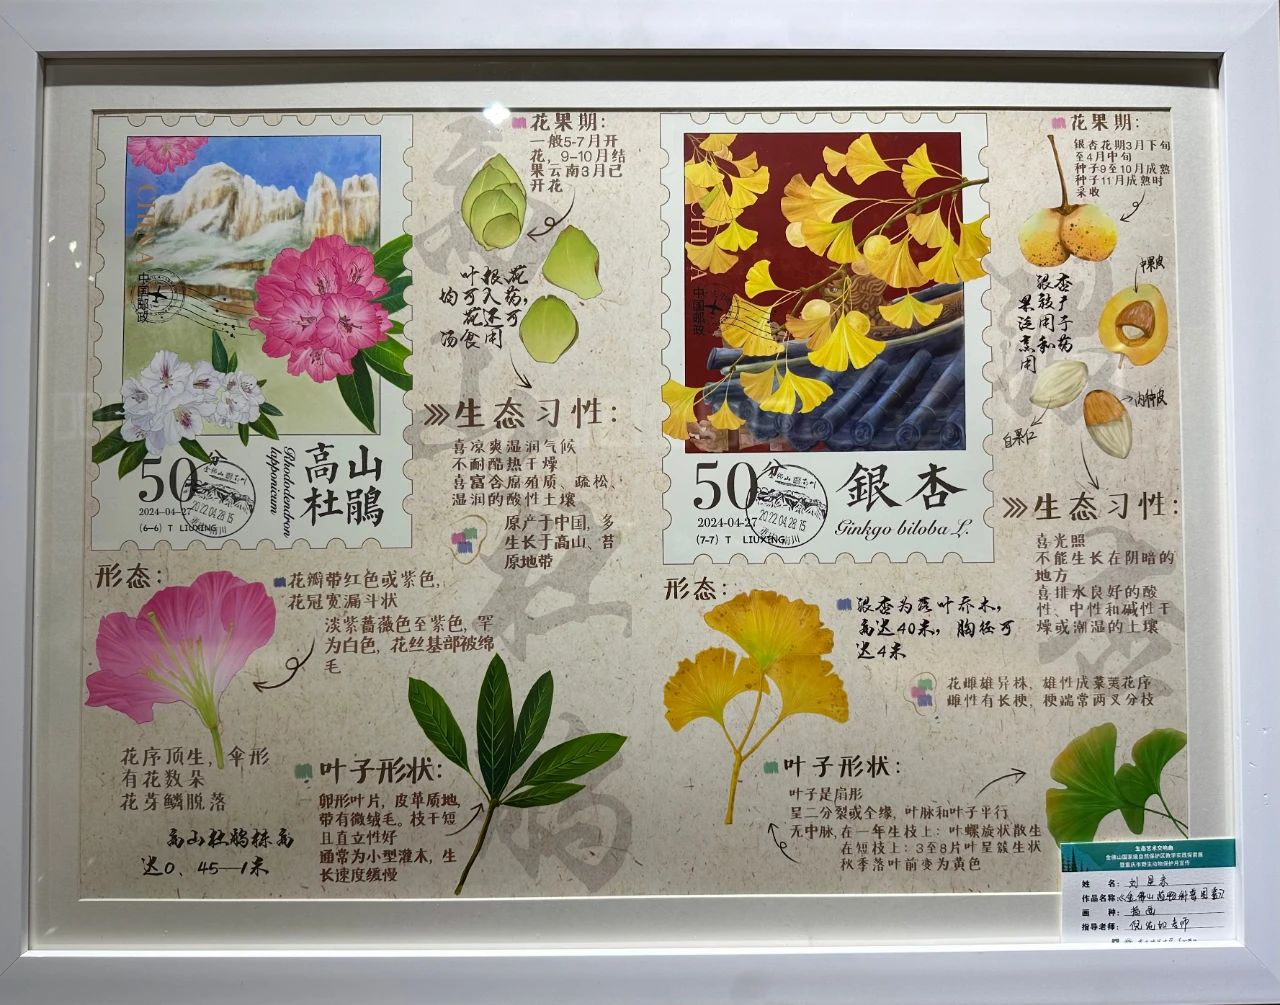 CHINA
中国邮政
50分
2024-04-27
(6-6) T LIUXING
高山
杜鹃
Rhododendron
lapponicum
花果期:
一般5-7月开
花，9-10月结
果云南3月已
开花
叶根花
均可入药,
花还可
汤食用
生态习性:
喜凉爽湿润气候
不耐酷热干燥
喜富含腐殖质、疏松、
湿润的酸性土壤
原产于中国，多
生长于高山、苔
原地带
形态:
花瓣带红色或紫色,
花冠宽漏斗状
淡紫蔷薇色至紫色，罕
为白色，花丝基部被绵
毛
花序顶生，伞形
有花数朵
花芽鳞脱落
高山杜鹃株高
达0.45—1米
叶子形状:
卵形叶片，皮革质地,
带有微绒毛。枝干短
且直立性好
通常为小型灌木，生
长速度缓慢
CHINA
中国邮政
50分
2024-04-27
(7-7) T LIUXING
2022.04.28.15
銀杏
Ginkgo biloba L.
花果期:
银杏花期3月下旬
至4月中旬
种子9至10月成熟
种子11月成熟时
采收
中果皮
内种皮
白果仁
生态习性:
喜光照
不能生长在阴暗的
地方
喜排水良好的酸
性、中性和碱性干
燥或潮湿的土壤
形态:
银杏为落叶乔木,
高达40米，胸径可
达4米
花雌雄异株，雄性成葇荑花序
雌性有长梗，梗端常两叉分枝
叶子形状:
叶子是扇形
呈二分裂或全缘，叶脉和叶子平行
无中脉,在一年生枝上：叶螺旋状散生
在短枝上：3至8片叶呈簇生状
秋季落叶前变为黄色
生态艺术交响曲
金佛山国家级自然保护区教学实践探索展
暨重庆市野生动物保护月宣传
姓 名:
作品名称:
画 种:
指导老师: